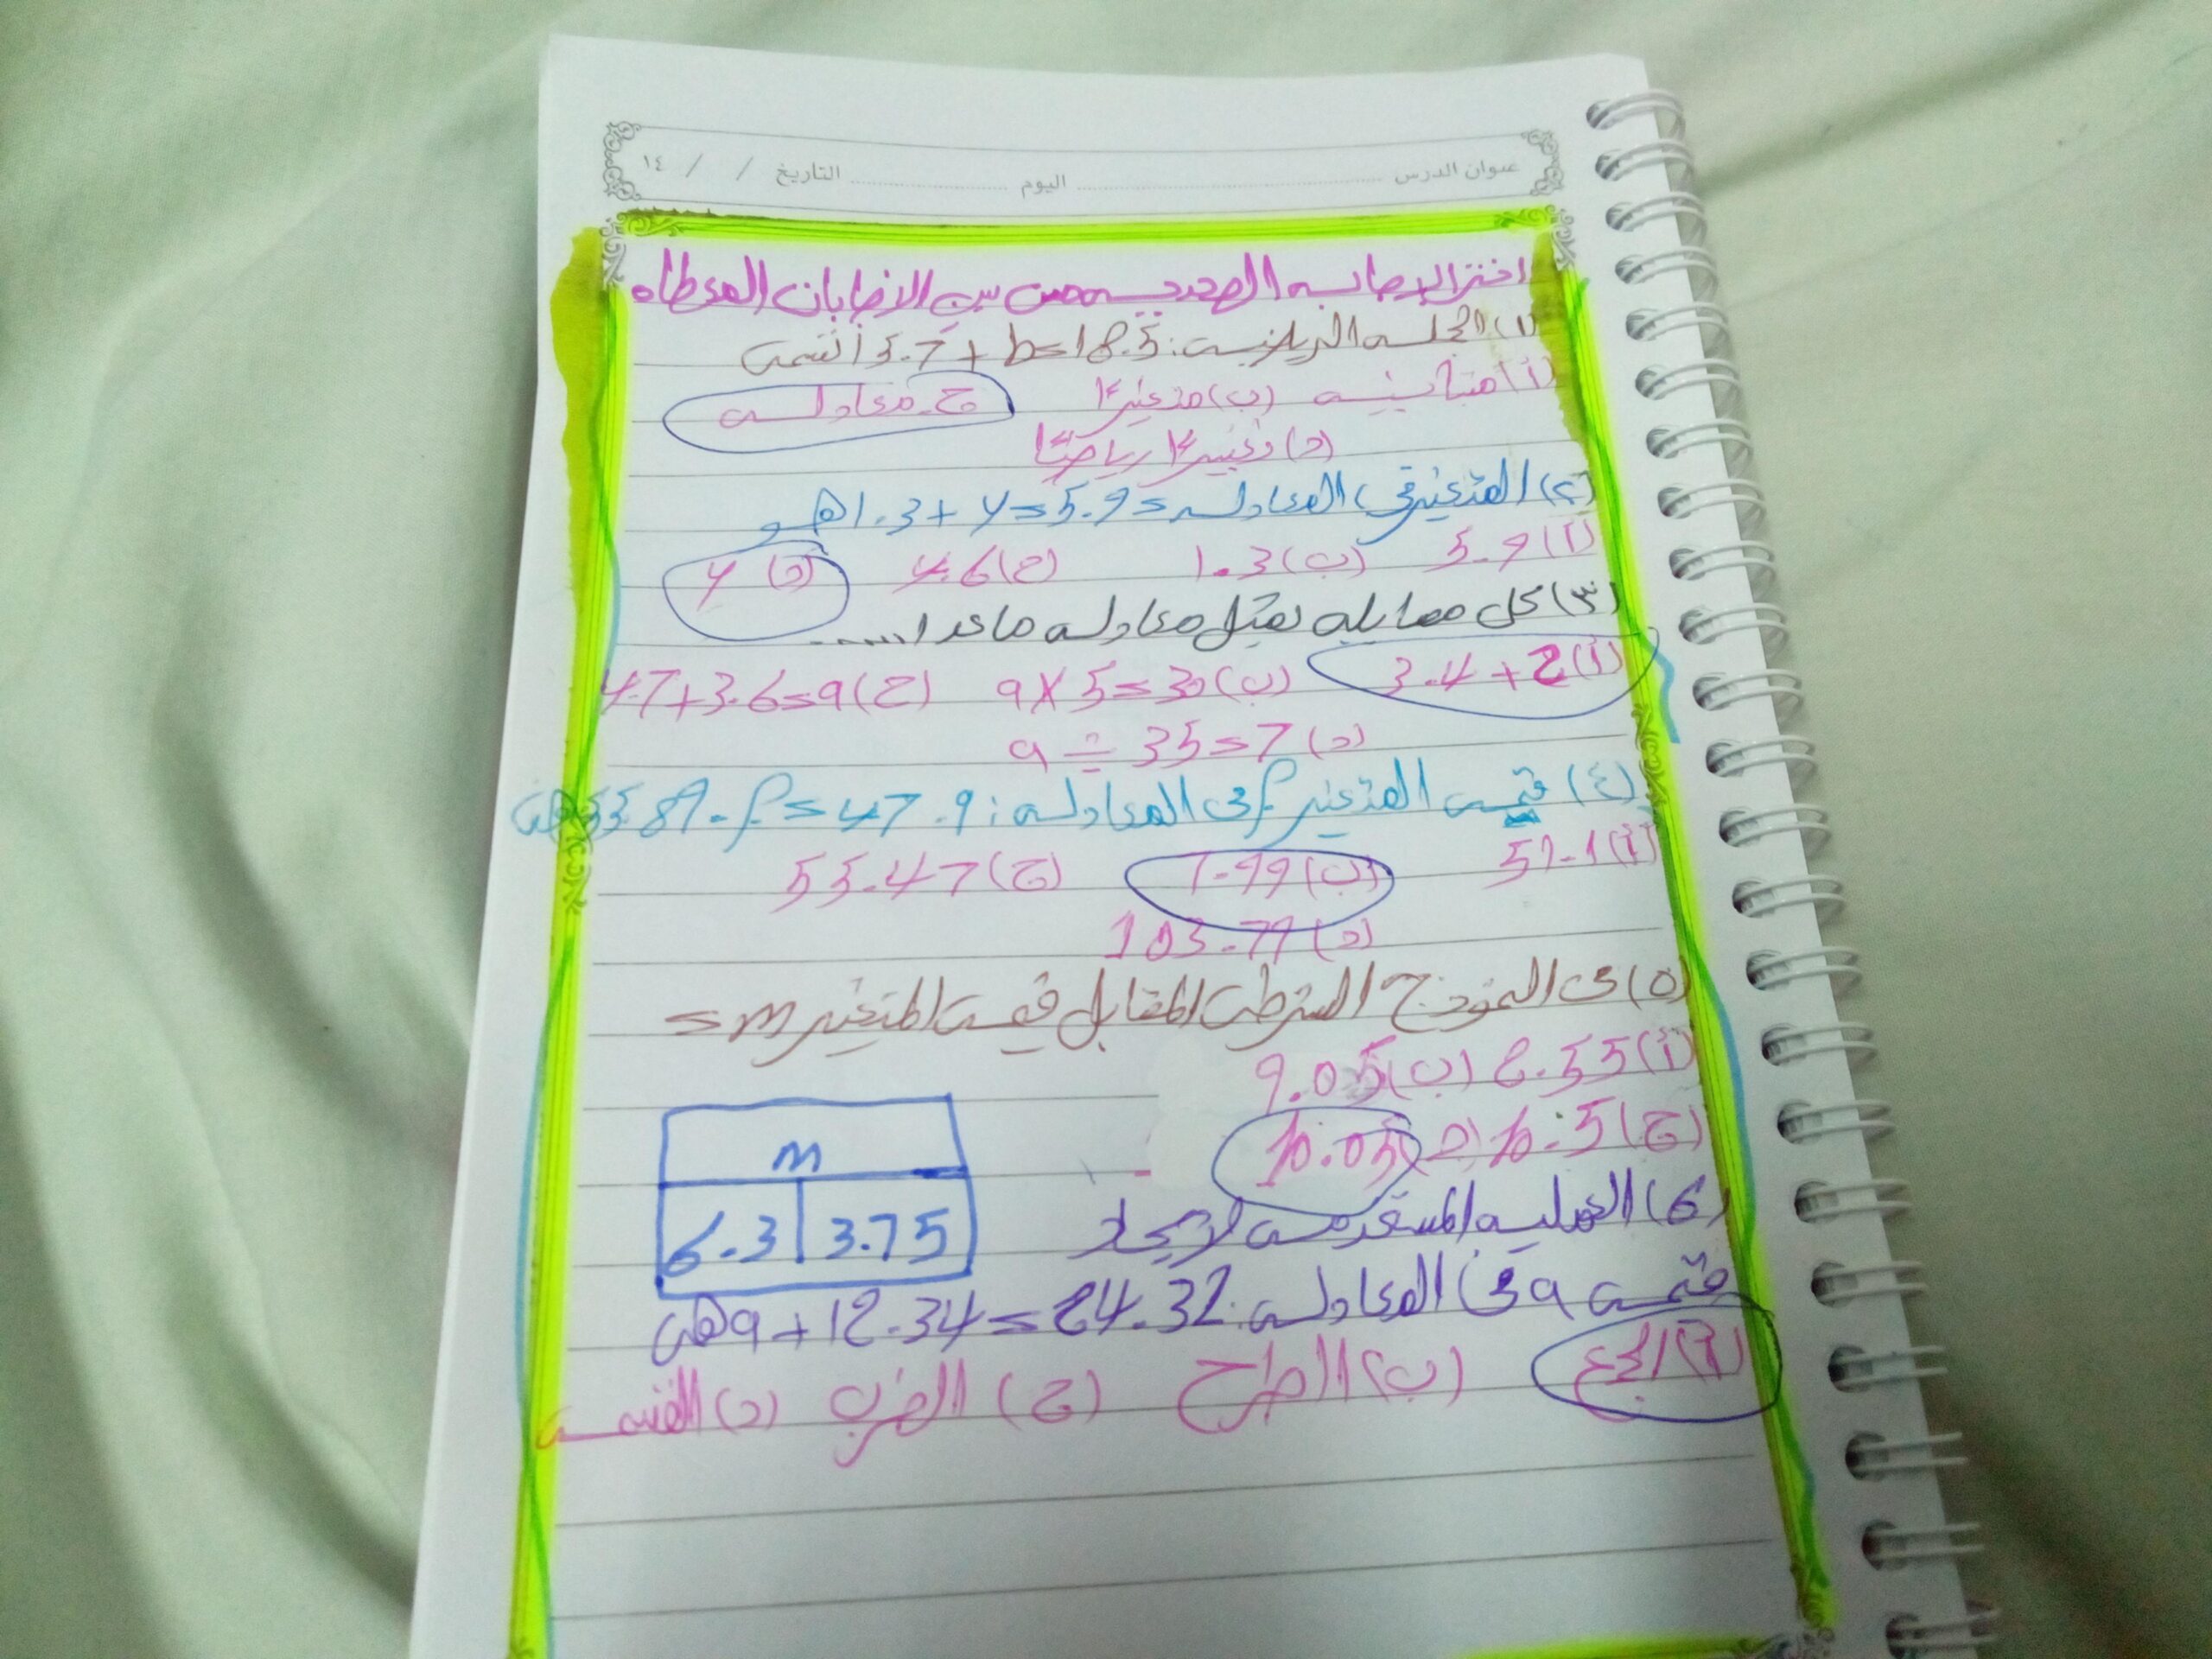 عنوان الدرس ........ اليوم ........ التاريخ / / ١٤
اختر الإجابه الصحيحه من بين الاجابات المعطاه
(١) الجمله الرياضيه: 3.7 + b = 18.5 تسمى
(أ) متباينه (ب) متغيرًا (ج) معادله
(د) تعبيرًا رياضيًا
(٢) المتغير في المعادله = 1.3 + y = 5.9 هو
(أ) 5.9 (ب) 1.3 (ج) 4.6 (د) y
(٣) كل مما يله يمثل معادله ماعدا ......
(أ) 3.4 + 2 (ب) a x 5 = 30 (ج) 4.7 + 3.6 = a
(د) a ÷ 35 = 7
(٤) قيمه المتغير f فى المعادله: 55.89 - f = 47.9 هى
(أ) 51.1 (ب) 7.99 (ج) 55.47
(د) 103.79
(٥) فى النموذج الشرطى المقابل قيمه المتغير m =
(أ) 8.55 (ب) 9.05
(ج) 10.5 (د) 10.05
m
6.3 3.75
(6) العمليه المستخدمه لايجاد
قيمه a فى المعادله: a + 12.34 = 24.32 هى
(أ) الجمع (ب) الطرح (ج) الضرب (د) القسمه